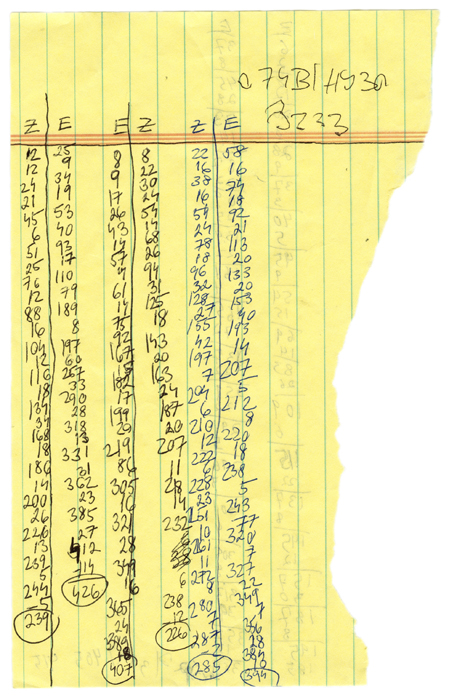 Z
12
12
24
21
45
6
51
25
76
12
88
16
104
12
116
18
134
34
168
18
186
14
200
26
226
13
239
5
244
5
239
E
25
9
34
19
53
40
93
17
110
79
189
8
197
60
257
33
290
28
318
13
331
31
362
23
385
27
412
14
426
E
8
9
17
26
43
14
57
4
61
14
75
92
167
15
182
17
199
20
219
86
305
16
321
28
349
16
365
24
389
18
407
Z
8
22
30
24
54
14
68
26
94
31
125
18
143
20
163
24
187
20
207
11
28
14
232
6
238
12
226
Z
22
16
38
16
54
24
78
18
96
32
128
27
155
42
197
7
204
6
210
12
222
6
228
23
251
10
261
11
272
8
280
7
287
285
E
58
16
74
18
92
21
113
20
133
20
153
40
193
14
207
5
212
8
220
18
238
5
243
77
320
7
327
22
349
7
356
28
384
344